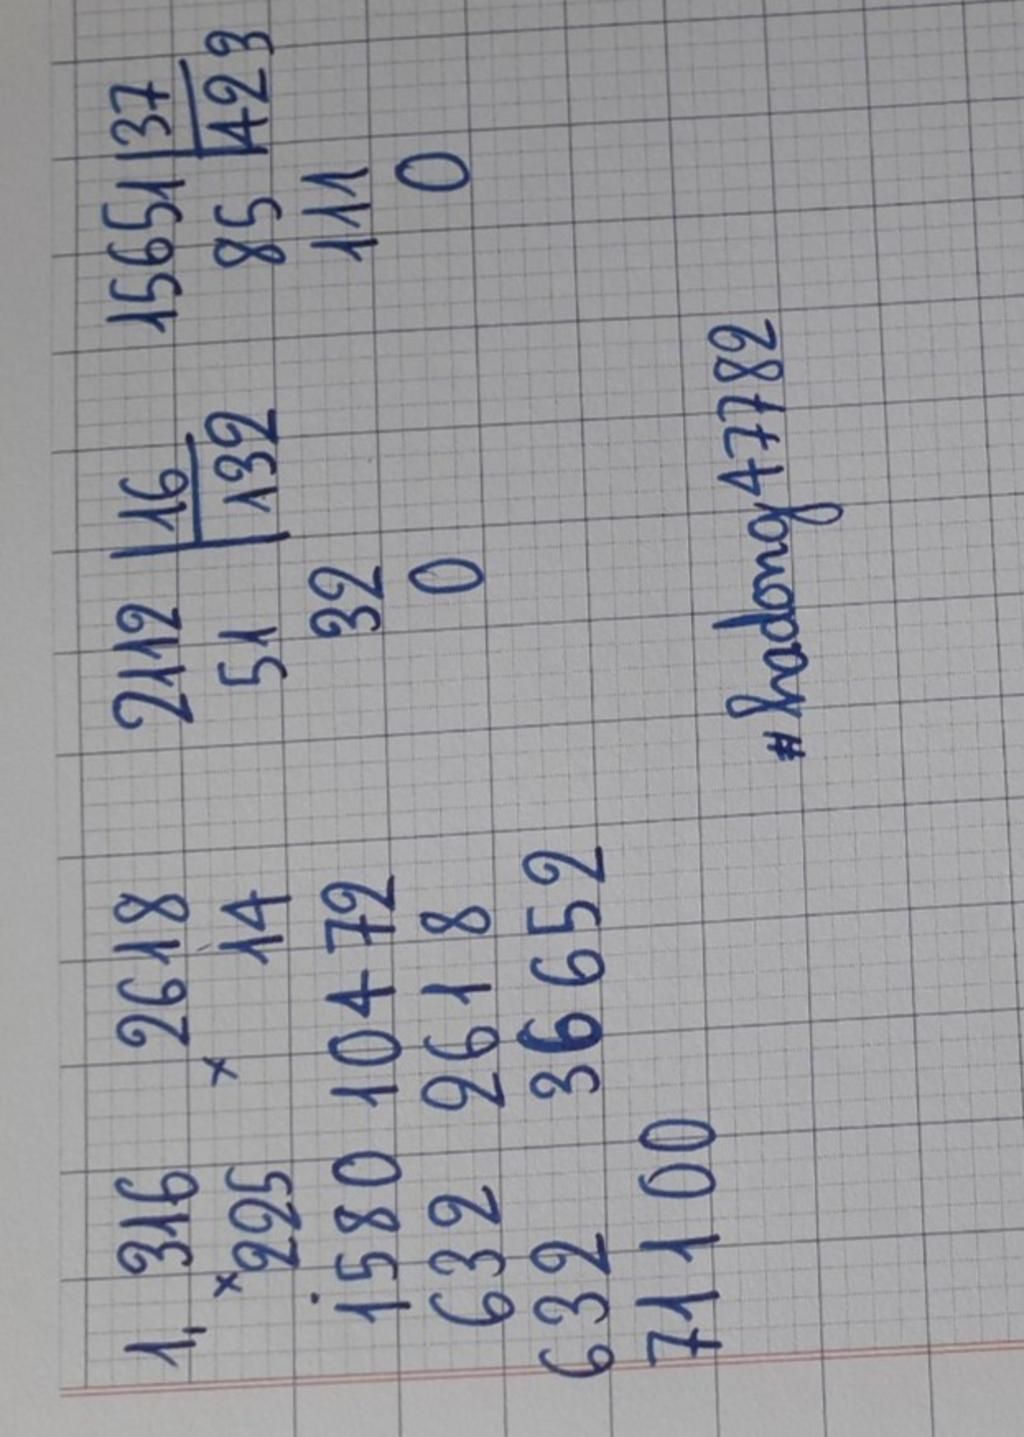 1, 316 2618 2112 | 16 15651 | 37
× 225 × 14 51 | 132 85 | 423
1580 10472 32 111
632 2618 0 0
632 36652
71100
#hadong47782